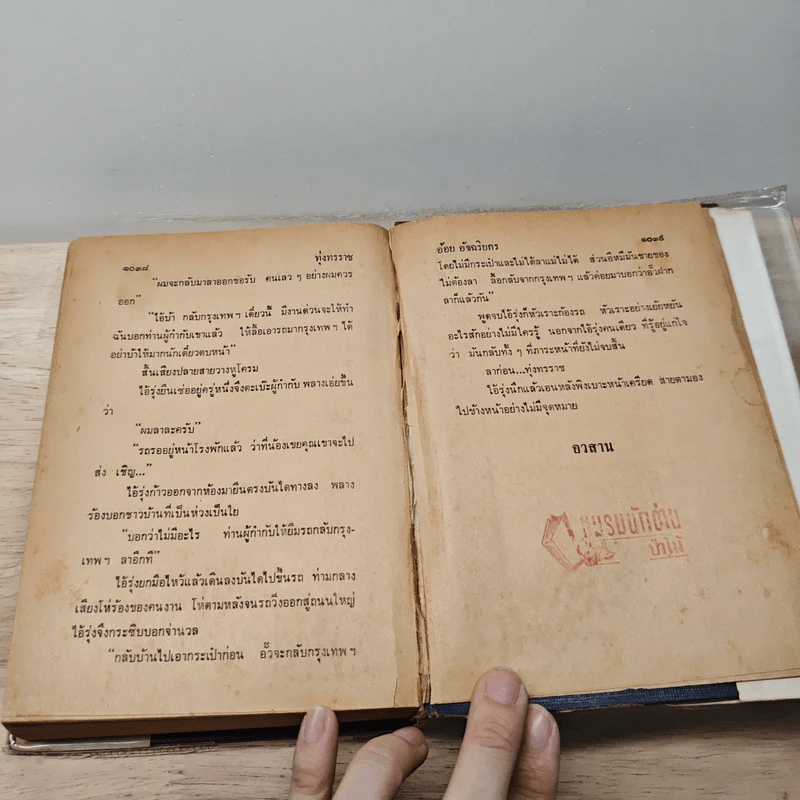 ๑๐๓๘ ทุ่งทรราช
"ผมจะกลับมาลาออกขอรับ คนเลว ๆ อย่างผมควร
ออก"
"ไอ้บ้า กลับกรุงเทพฯ เดี๋ยวนี้ มีงานด่วนจะให้ทำ
ฉันบอกท่านผู้กำกับเขาแล้ว ให้ลื้อเอารถมากรุงเทพฯ ได้
อย่าบ้าให้มากนักเดี๋ยวตบหน้า"
สิ้นเสียงปลายสายวางหูโครม
ไอ้รุ่งยืนเซ่ออยู่ครู่หนึ่งจึงตะเบ๊ะผู้กำกับ พลางเอ่ยขึ้น
ว่า
"ผมลาละครับ"
"รถรออยู่หน้าโรงพักแล้ว ว่าที่น้องเขยคุณเขาจะไป
ส่ง เชิญ..."
ไอ้รุ่งก้าวออกจากห้องมายืนตรงบันไดทางลง พลาง
ร้องบอกชาวบ้านที่เป็นห่วงเป็นใย
"บอกว่าไม่มีอะไร ท่านผู้กำกับให้ยืมรถกลับกรุง-
เทพฯ ลาอีกที"
ไอ้รุ่งยกมือไหว้แล้วเดินลงบันไดไปขึ้นรถ ท่ามกลาง
เสียงโห่ร้องของคนงาน โห่ตามหลังจนรถวิ่งออกสู่ถนนใหญ่
ไอ้รุ่งจึงกระซิบบอกจ่านวล
"กลับบ้านไปเอากระเป๋าก่อน อั๊วจะกลับกรุงเทพฯ
อ้อย อัจฉริยกร ๑๐๓๙
โดยไม่มีกระเป๋าและไม่ได้ลาแม่ไม่ได้ ส่วนอีหมีมันขายของ
ไม่ต้องลา ลื้อกลับจากกรุงเทพฯ แล้วค่อยมาบอกว่าอั๊วฝาก
ลาก็แล้วกัน"
พูดจบไอ้รุ่งก็หัวเราะก้องรถ หัวเราะอย่างเย้ยหยัน
อะไรสักอย่างไม่มีใครรู้ นอกจากไอ้รุ่งคนเดียว ที่รู้อยู่แก่ใจ
ว่า มันกลับทั้ง ๆ ที่ภาระหน้าที่ยังไม่จบสิ้น
ลาก่อน...ทุ่งทรราช
ไอ้รุ่งนึกแล้วเอนหลังพิงเบาะหน้าเครียด สายตามอง
ไปข้างหน้าอย่างไม่มีจุดหมาย
อวสาน
ชมรมนักอ่าน
ป่าไม้